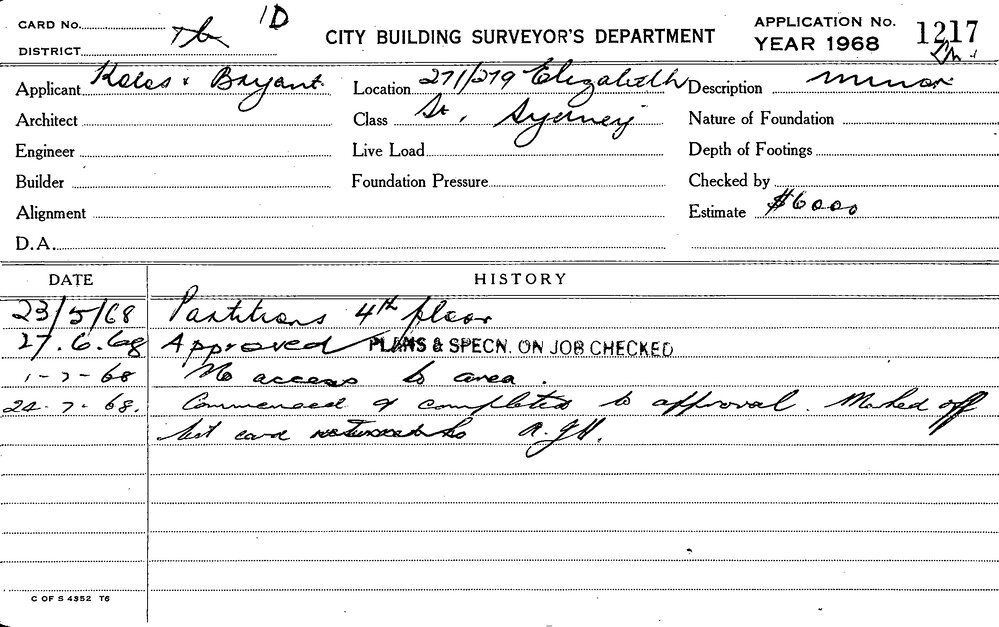 CARD No.
1D
DISTRICT
CITY BUILDING SURVEYOR'S DEPARTMENT
APPLICATION No. 1217
YEAR 1968
Applicant Keles & Bryant
Location 271/279 Elizabeth
Description minor
Architect
Class St, Sydney
Nature of Foundation
Engineer
Live Load
Depth of Footings
Builder
Foundation Pressure
Checked by
Alignment
Estimate $6000
D.A.
DATE HISTORY
23/5/68 Partitions 4th floor
27.6.68 Approved PLANS & SPECN. ON JOB CHECKED
1-7-68 No access to area.
24-7-68. Commenced & completed to approval. Marked off
list card returned to R.G.H.
C OF S 4352 T6